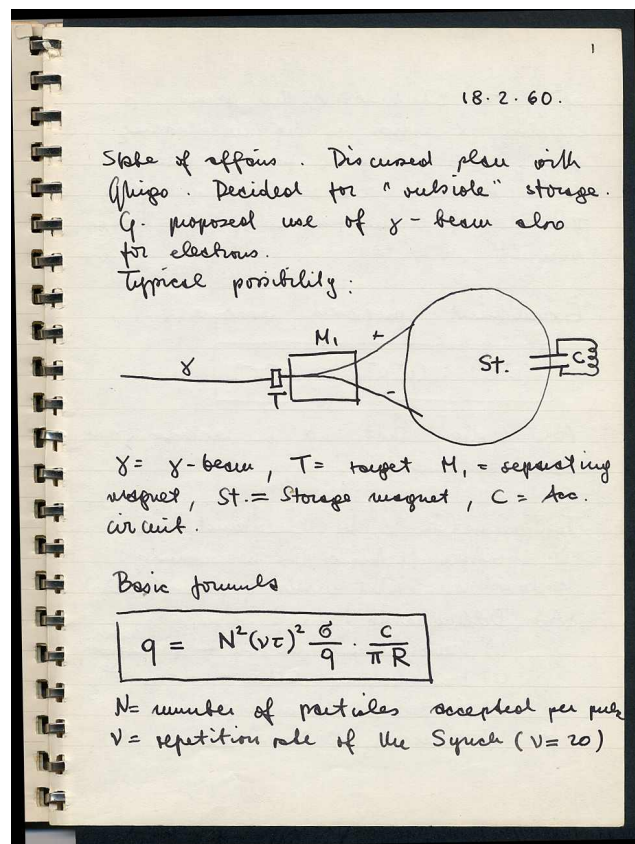 1
18.2.60.
State of affairs. Discussed plan with
Ghigo. Decided for "outside" storage.
G. proposed use of γ-beam also
for electrons.
Typical possibility:
γ T M₁ + - St. C
γ = γ-beam, T = target M₁ = separating
magnet, St. = Storage magnet, C = Acc.
circuit.
Basic formula
q = N²(ντ)² σ/q · c/πR
N = number of particles accepted per pulse
ν = repetition rate of the Synch (ν = 20)